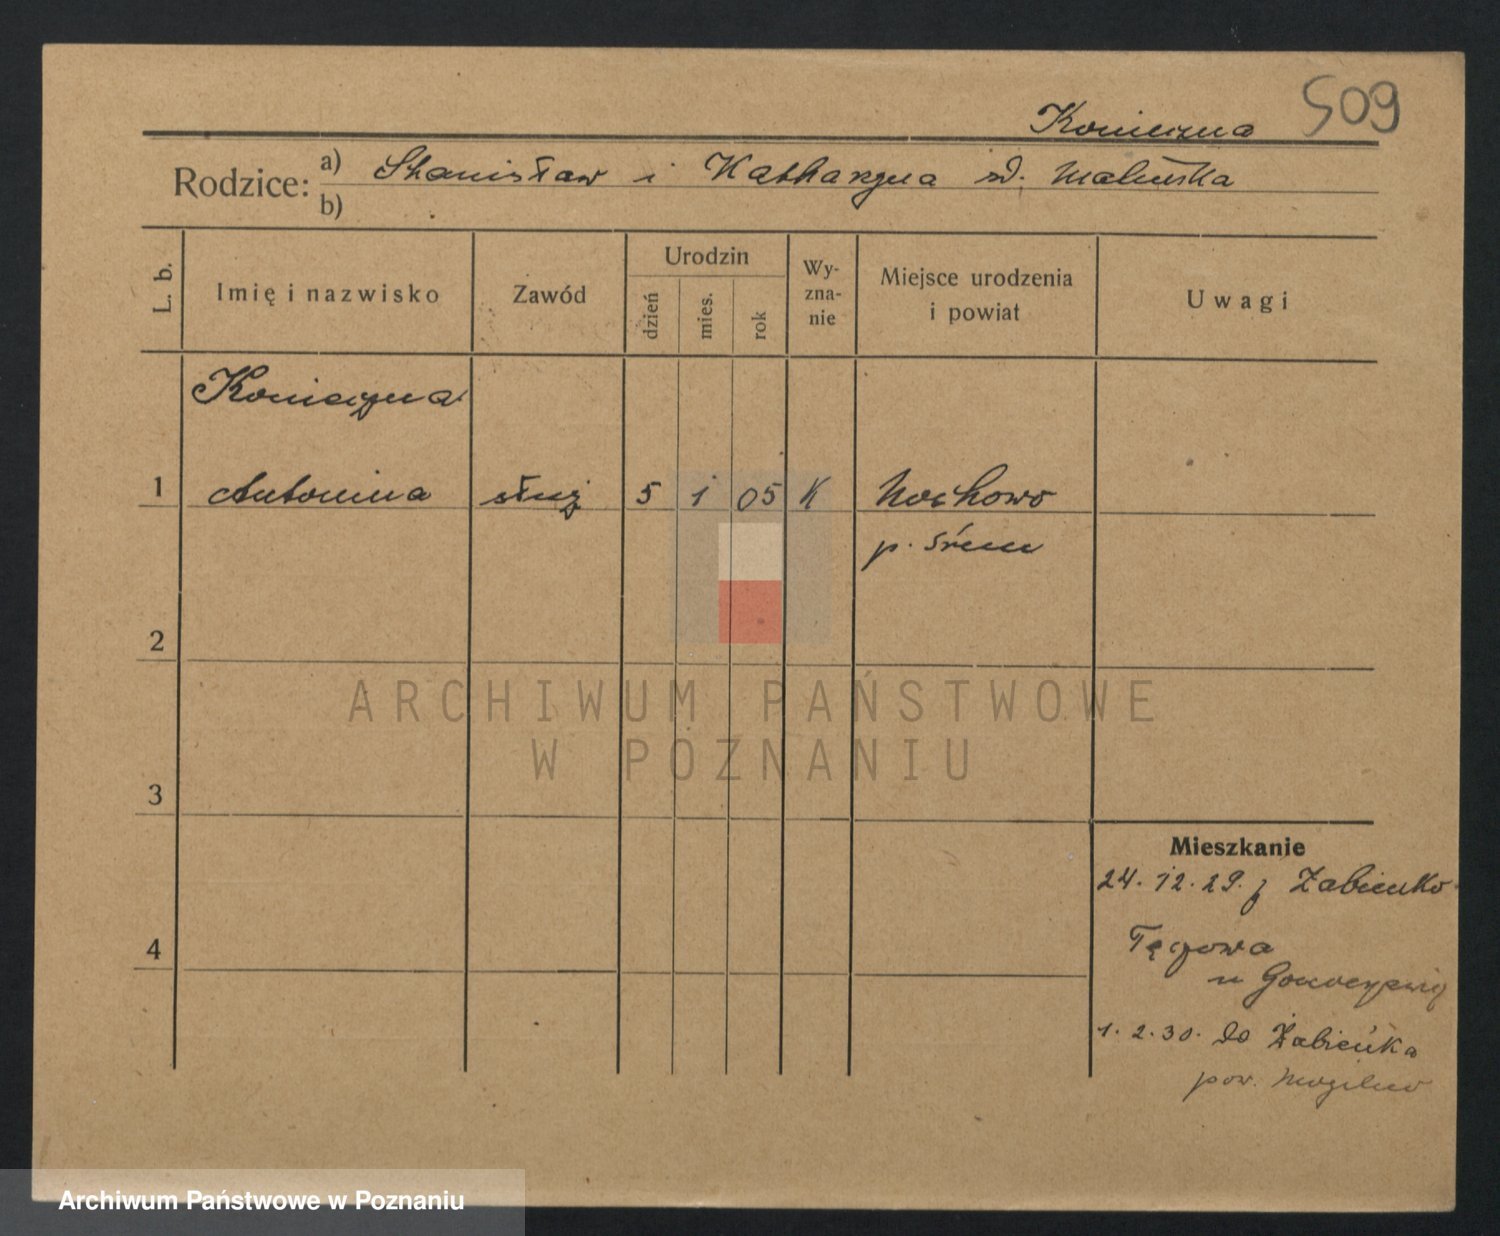 509
Konieczna
Rodzice: a) Stanisław i Katharzyna zd. Maleńska
b)
L. b.
Imię i nazwisko
Zawód
Urodzin
dzień
mies.
rok
Wy-
zna-
nie
Miejsce urodzenia
i powiat
Uwagi
Konieczna
1 Antonina służ 5 1 05 K Nochowo
p. Śrem
2
ARCHIWUM PAŃSTWOWE
W POZNANIU
3
Mieszkanie
24. 12. 29. z Żabieńko
4
u
1. 2. 30. do Żabieńka
pow. Mogilno
Archiwum Państwowe w Poznaniu